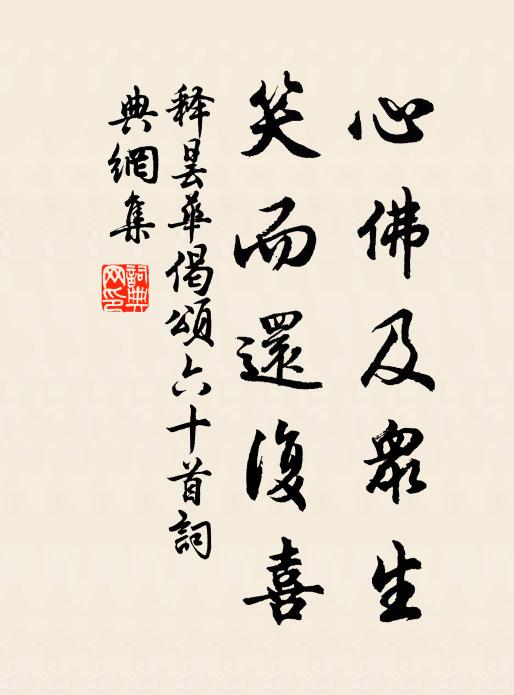 心佛及眾生
笑而還復喜
释曇華偈頌六十首詞
典網集
詞典网印